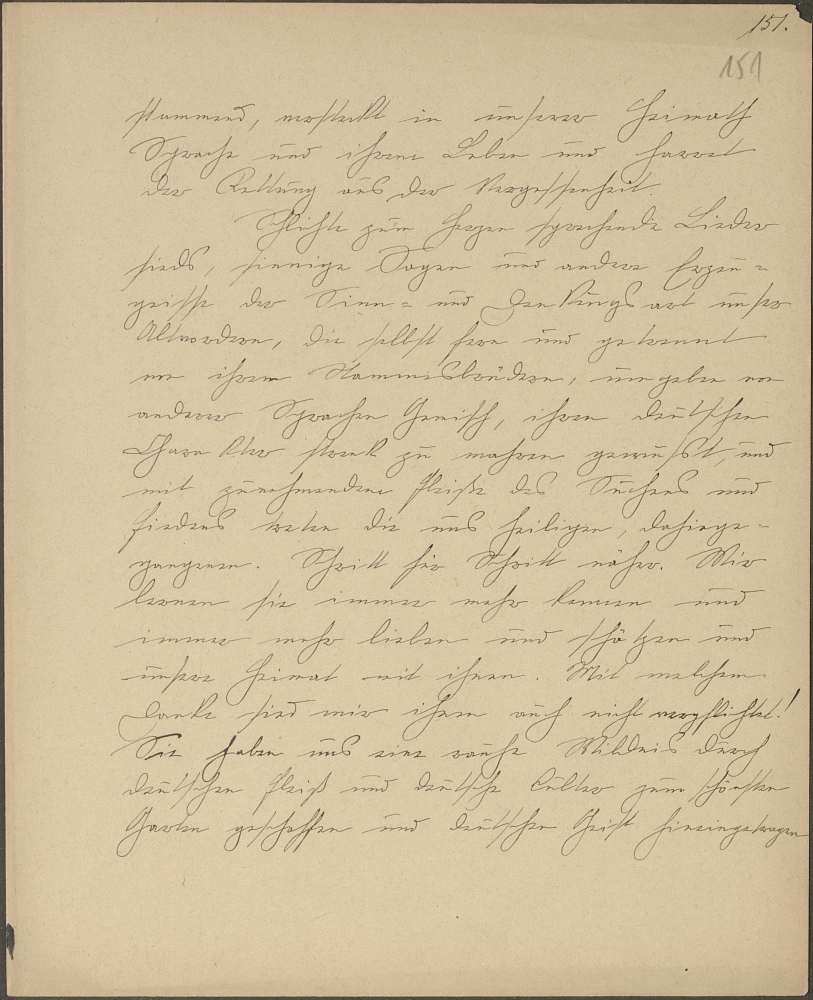 151.
151
stammend, versteckt in unserer Heimath
Sprache und ihrem Leben und harret
der Rettung aus der Vergessenheit.
Schlichte zum Herzen sprechende Lieder
sinds, sinnige Sagen und andere Erzeu=
gnisse der Sinn= und Denkungsart unser
Altvordern, die selbst fern und getrennt
von ihren Stammesbrüdern, umgeben von
anderer Sprachen Gemisch, ihren deutschen
Charakter stark zu wahren gewusst, und
mit zunehmendem Fleiße des Suchens und
Findens treten die uns heiligen, dahinge=
gangenen. Schritt für Schritt näher. Wir
lernen sie immer mehr kennen und
immer mehr lieben und schätzen und
unsere Heimat mit ihnen. Mit welchem
Danke sind wir ihnen auch nicht verpflichtet!
Sie haben uns eine rauhe Wildnis durch
deutschen Fleiß und deutsche Cultur zum schönsten
Garten geschaffen und deutschen Geist hineingetragen